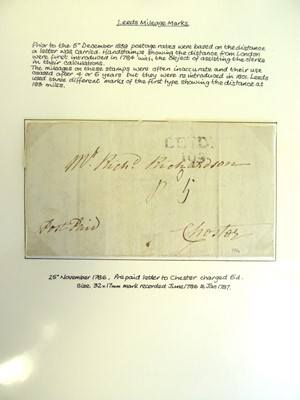 Leeds Mileage Marks
Prior to the 5th December 1839 postage rates were based on the distance
a letter was carried. Handstamps showing the distance from London
were first introduced in 1784 with the object of assisting the clerks
in their calculations.
The mileages on these stamps were often inaccurate and their use
ceased after 4 or 5 years but they were re introduced in 1801. Leeds
used three different marks of the first type showing the distance at
193 miles.
LEEDS
193
Mr Richd Richardson
P 5
Post Paid
Chester
25th November 1786. Prepaid letter to Chester charged 5d.
Size 32x17mm mark recorded June 1786 to Jan 1787.